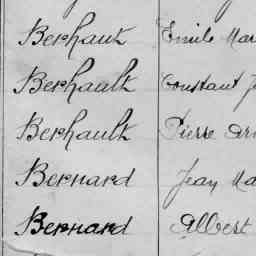 Berhault Emile Mar
Berhault Constant J
Berhault Pierre Arm
Bernard Jean Ma
Bernard Albert